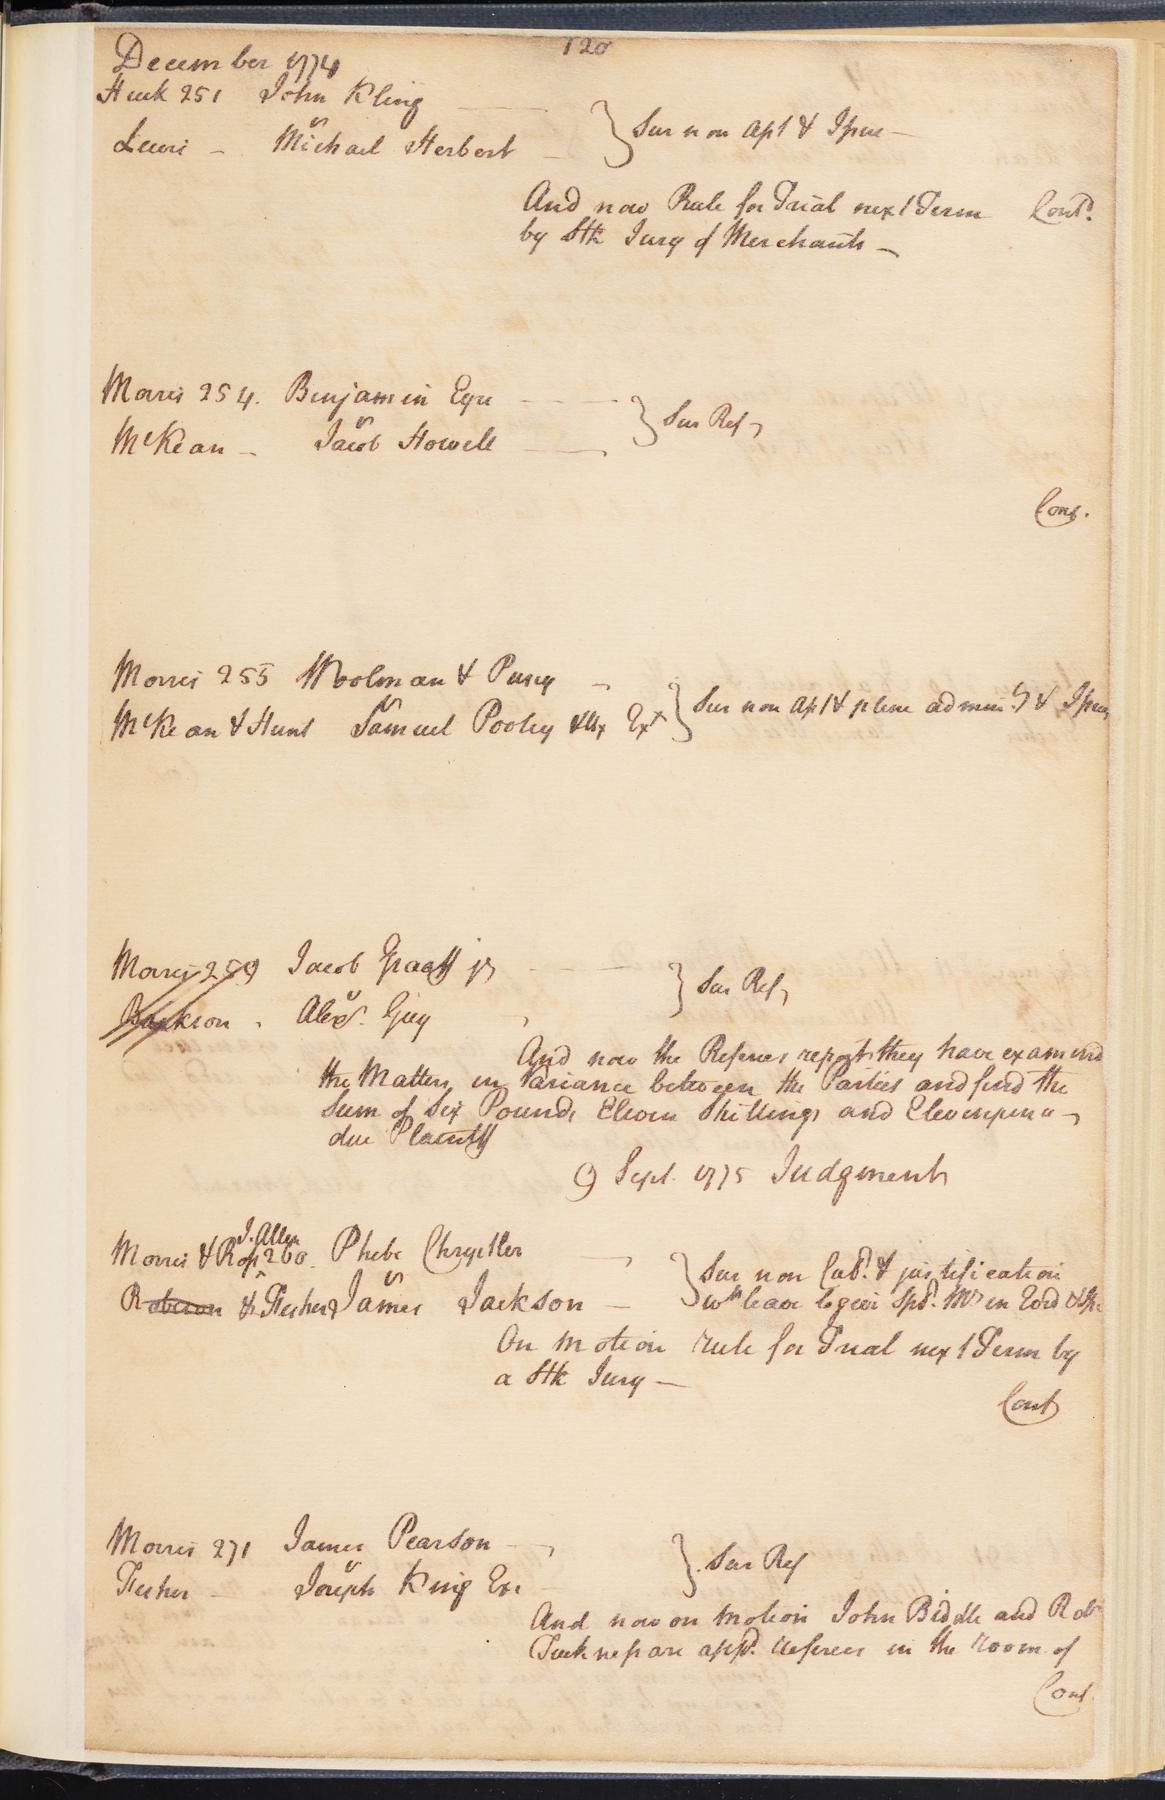 120
December 1774
Huck 251 John Kling
vs
Lewis - Michael Herbert -
} Sur non Apt & Issue -
And now Rule for Trial next Term Contd.
by Stk Jury of Merchants -
Morris 254. Benjamin Eyre
vs
McKean - Jacob Howell
} Sur Ref
Cont.
Morris 255 Woolman & Pusey
vs
McKean & Hunt Samuel Pooley & Ux Exx
} Sur non Apt & plene admin. & Issue
Morris 259 Jacob Graaff jr
vs
Bankson. Alexr. Guy
} Sur Ref
And now the Referees report they have examined
the Matters in Variance between the Parties and find the
Sum of Six Pounds Eleven Shillings and Elevenpence
due Plaintiff
9 Sept. 1775 Judgment
J. Allen
Morris & 260. Phebe Chrystler
vs
Roberson & Fisher James Jackson -
} Sur non Cul. & justification
wth leave to give Spl. Mr in Evid &
On motion rule for Trial next Term by
a Stk Jury -
Cont
Morris 271 James Pearson
vs
Fisher Joseph King Exr
} Sur Ref
And now on motion John Biddle and Robt
Jackness are appd. referees in the room of
Cont.